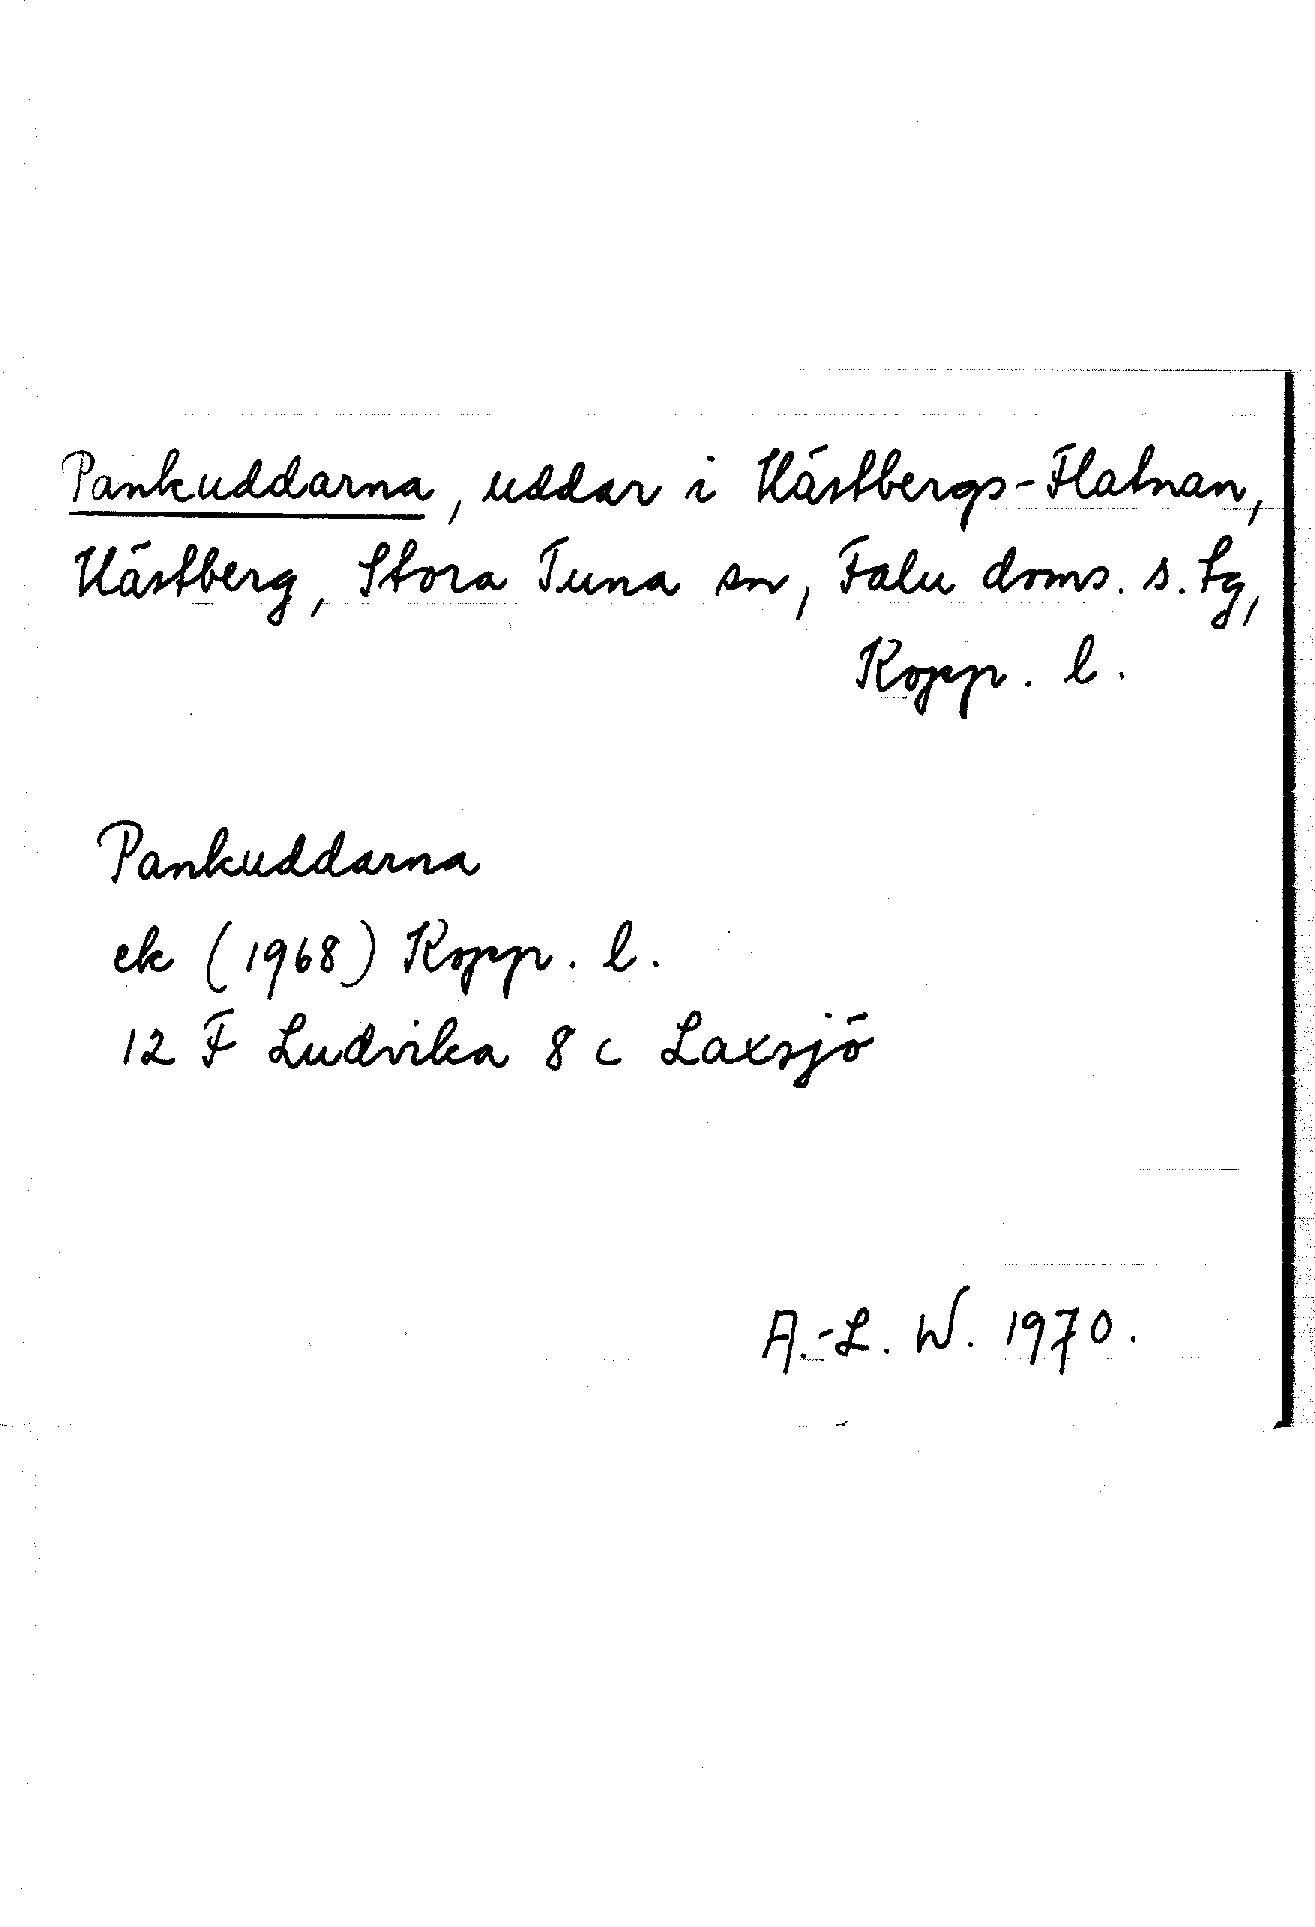 Pankuddarna, uddar i Hästbergs-Flatnan,
Hästberg, Stora Tuna sn, Falu doms. s. tg,
Kopp. l.
Pankuddarna
ek (1968) Kopp. l.
12 F Ludvika 8 c Laxsjö
A.-L. W. 1970.